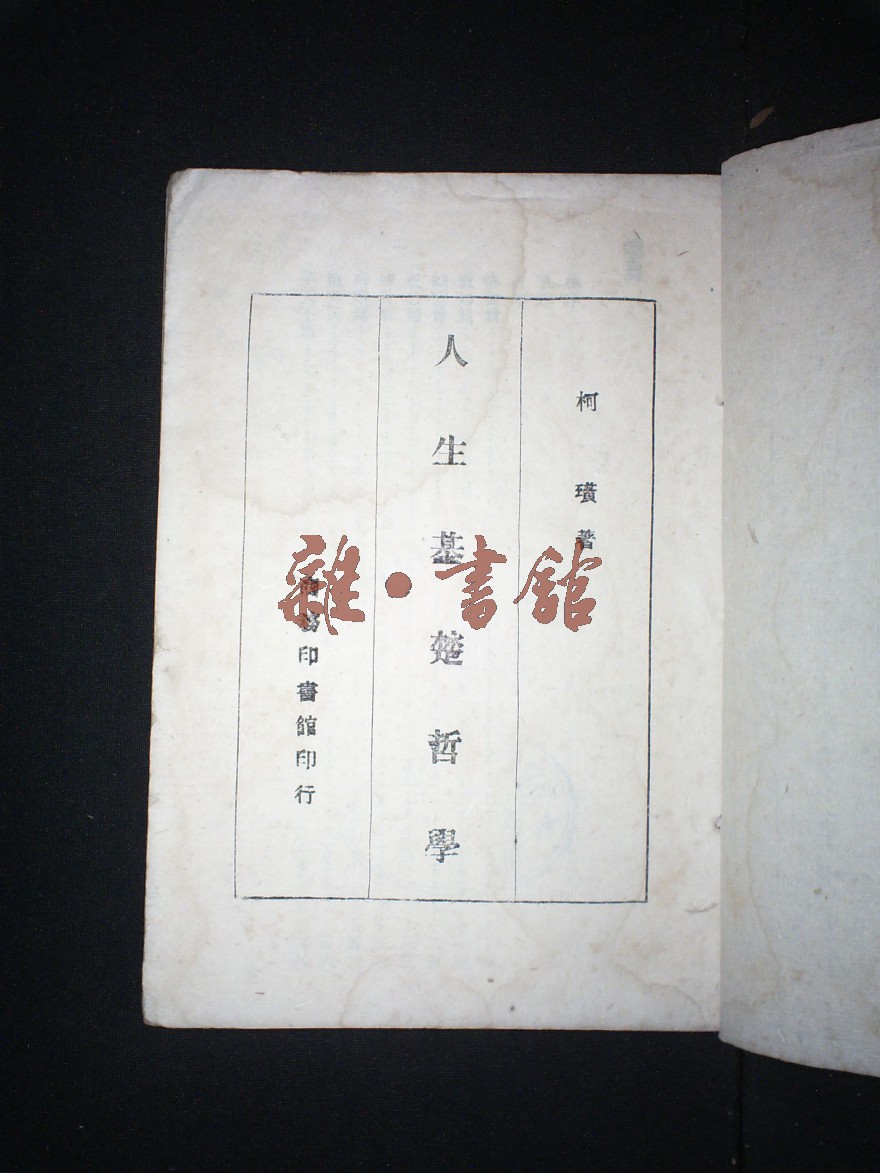 柯璜著
人生基楚哲學
商務印書館印行
雜·書館